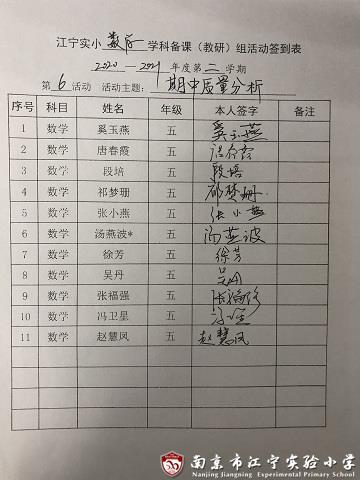 江宁实小 数学 学科备课（教研）组活动签到表
2020—2021年度第二学期
第6活动 活动主题：期中质量分析
序号 科目 姓名 年级 本人签字 备注
1 数学 奚玉燕 五 奚玉燕
2 数学 唐春霞 五
3 数学 段培 五 段培
4 数学 祁梦珊 五 祁梦珊
5 数学 张小燕 五 张小燕
6 数学 汤燕波* 五 汤燕波
7 数学 徐芳 五 徐芳
8 数学 吴丹 五 吴丹
9 数学 张福强 五 张福强
10 数学 冯卫星 五
11 数学 赵慧凤 五 赵慧凤
南京市江宁实验小学
Nanjing Jiangning Experimental Primary School